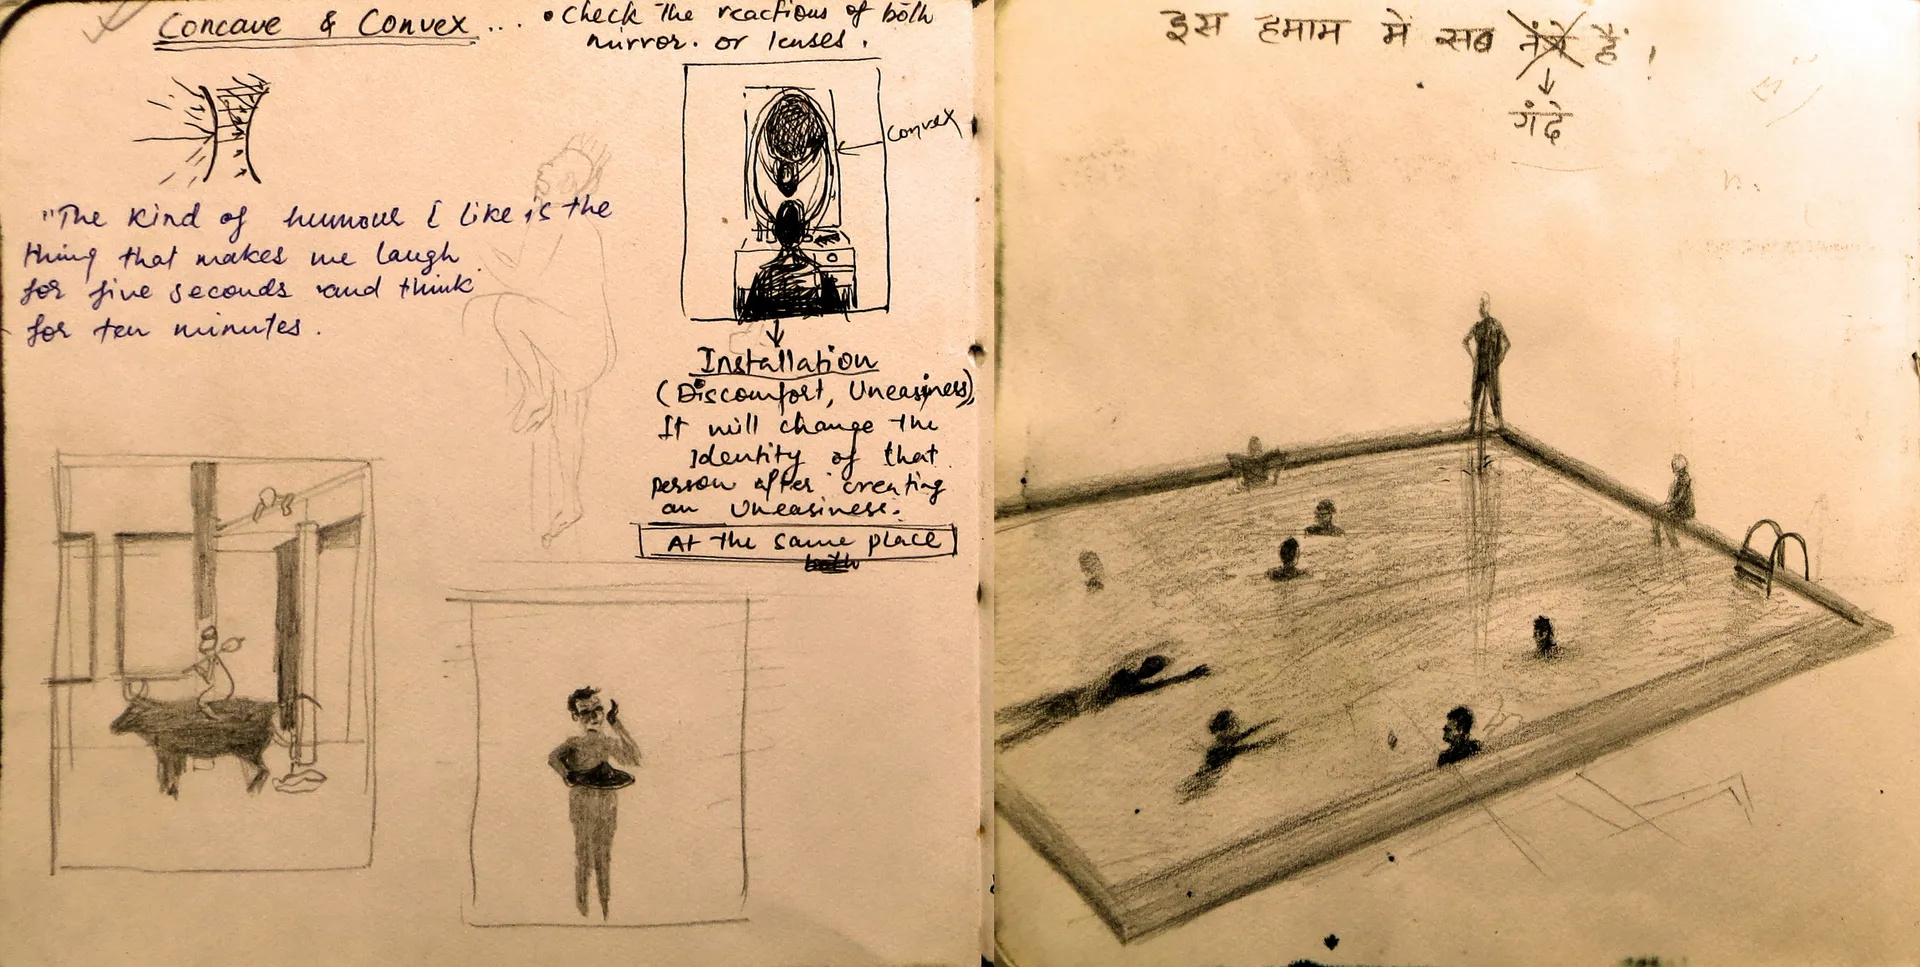 Concave & Convex...
• Check The reactions of both
mirror. or lenses.
convex
"The kind of humour I like is the
thing that makes me laugh
for five seconds and think
for ten minutes.
Installation
(Discomfort, Uneasiness),
It will change the
Identity of that
person after creating
an Uneasiness.
At the same place
both
इस हमाम में सब नंगे हैं!
गंदे